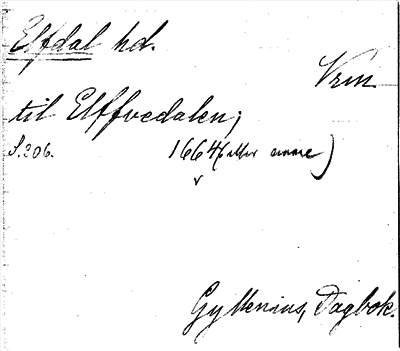 Elfdal hd.
Vrm
til Elffvedalen;
S. 206. 1664 (eller annare)
Gyllenius, Dagbok.